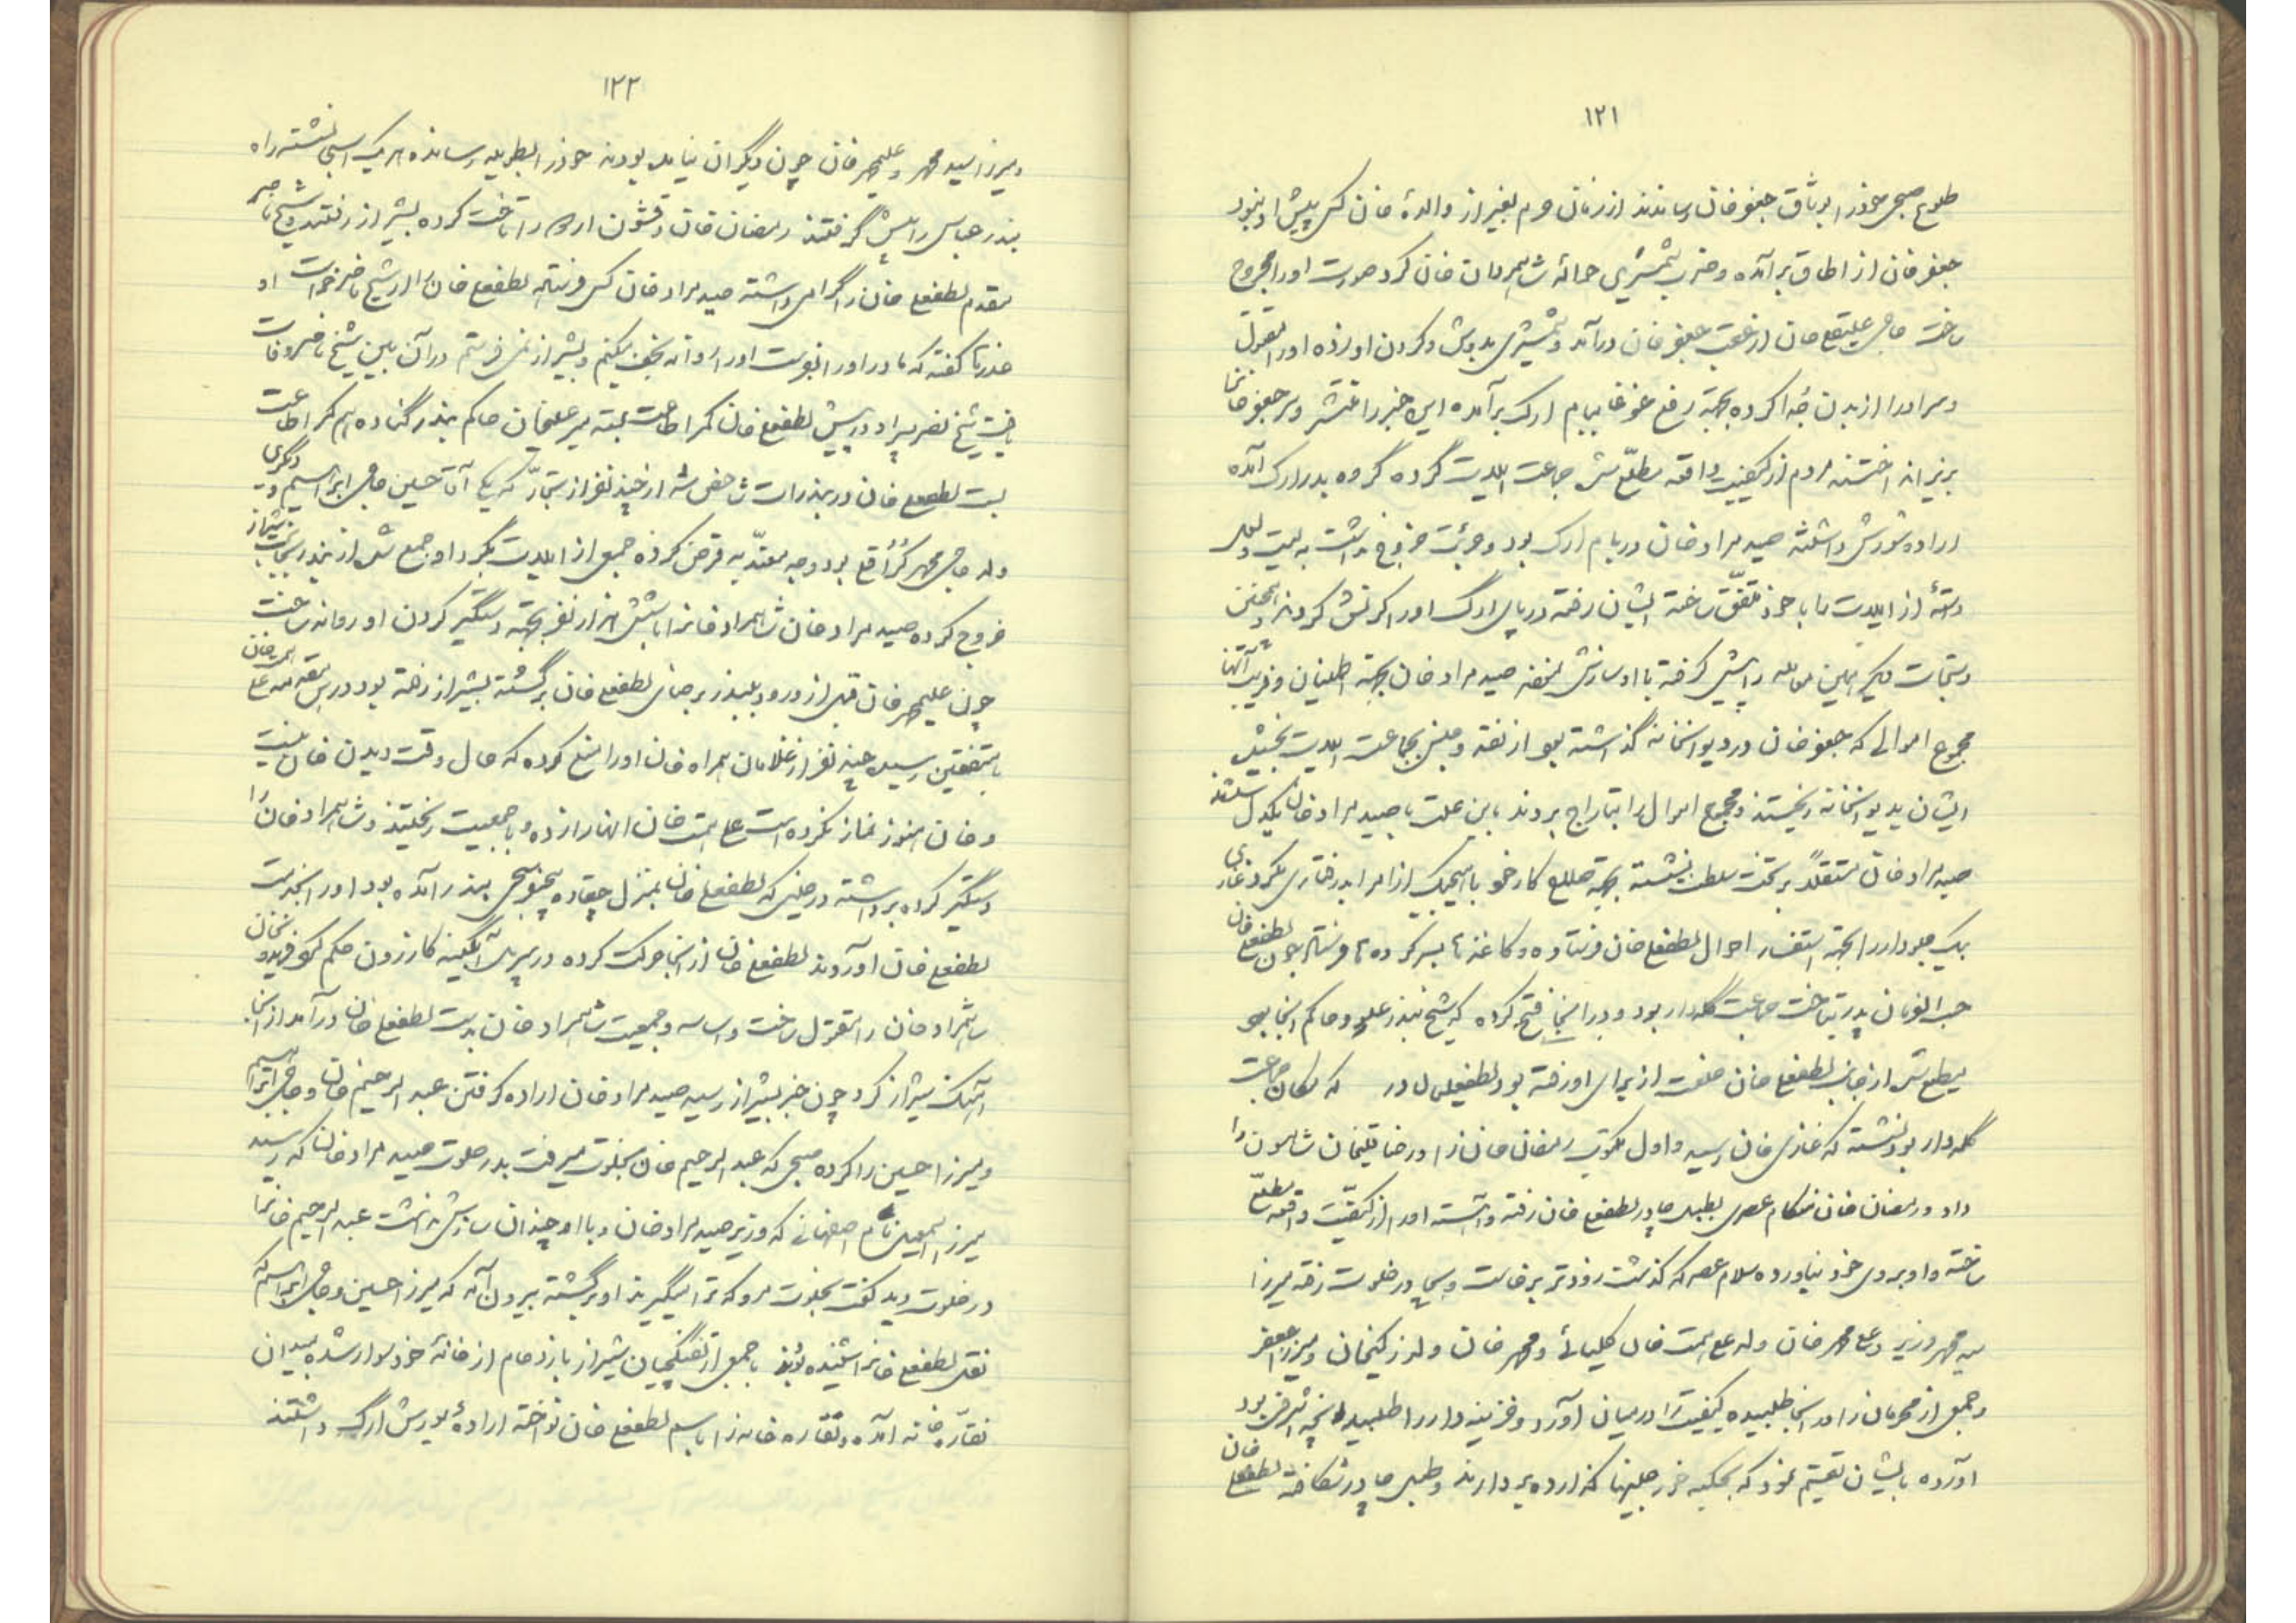 ۱۲۱
طلوع صبحی خود را بوثاق جعفرخان رساندند از زنان حرم بغیر از والدهٔ خان کسی پیش او نبود
جعفرخان از اطاق برآمده و ضرب شمشیری حوالهٔ شاهمرادخان کرد صورت او را مجروح
ساخت حاجی علیقلیخان از عقب جعفرخان درآمد و شمشیری بدوش و گردن او زده او را مقتول
و سر او را از بدن جدا کرده بجهة رفع غوغا ببام ارک برآمده این خبر را منتشر و سر جعفرخانرا
بزیر انداختند مردم از کیفیت واقعه مطلع شده جماعت الیت گروه گروه بدر ارک آمده
اراده شورش داشتند صیدمرادخان در بام ارک بود و جرئت خروج نداشت به لیت ولعل
دستهٔ از الیت را با خود متفق ساخته ایشان رفته در پای ارک او را کرنش کردند همچنین
دستجات دیگر همین معامله را پیش گرفته با او سازش نموده صیدمرادخان بجهة اطمینان و فریب آنها
مجموع اموالی که جعفرخان در دیوانخانه گذاشته بود از نقد و جنس بجماعت الیت بخشید
ایشان بدیوانخانه ریختند و مجموع اموال را بتاراج بردند باین علت با صیدمرادخان یکدل شدند
صیدمرادخان مستقلاً بر تخت سلطنت نشسته بجهة صلاح کار خود با هیچیک از امرا بدرفتاری نکرد غازی
بیک جلودار را بجهة استفسار احوال لطفعلی خان فرستاده و کاغذ تا بسر کرده تا فرستاد چون لطفعلیخان
حسب الفرمان پدر بتاخت جماعت گله‌دار بود و در آنجا فتح کرده که شیخ بندر علی و حاکم آنجا بود
مطیع شد از جانب لطفعلی خان خلعت از برای او رفته بود لطفعلی در که مکان جماعت
گله‌دار بود نشسته که غازی خان رسید و اول مکتوب رمضان خان زند و رضاقلیخان شاهسون را
داد و رمضان خان هنگام عصری بطبل چادر لطفعلی خان رفته و آهسته او را از کیفیّت واقعه مطلّع
ساخته و او بروی خود نیاورده سلام عصر که گذشت زودتر برخاست و بچادر خلوت رفته میرزا
سید محمد وزیر و علی محمدخان ولد علی همت خان کلیائی و محمدخان ولد زکیخان و میرزا جعفر
و جمعی از محرمان را در آنجا طلبیده کیفیت را در میان آورد و خزینه‌دار را طلبیده آنچه اشرفی بود
آورده بایشان تقسیم نمود که بجکیه خورجینها گذارده بردارند و طبل چادر شکافته لطفعلی خان
۱۲۲
و میرزا سید محمد و علیمحمدخان چون دیگران نیامده بودند خود را بطویله رسانده هر یک اسبی نشسته راه
بندر عباس را پیش گرفتند رمضان خان و قشون اردو را تاخت کرده بشیراز رفتند و شیخ ناصر
مقدم لطفعلی خان را گرامی داشته صیدمراد خان کس فرستاد لطفعلی خان را از شیخ ناصر خواست او
عذرها گفته که مادر او را نبوست او را روانه نجف میکنم و بشیراز نمی فرستم در آن بین شیخ ناصر وفات
یافت شیخ نصر پسر او در پیش لطفعلی خان کمر اطاعت بسته میر علیخان حاکم بندر گناوه هم کمر اطاعت
بست لطفعلی خان در بندرات شاخص شد از چند نفر از تجّار که یکی آقا حسین حاجی ابراهیم و دیگری
ولد حاجی محمد کرّاقلی بود وجه معتدّ به قرض کرده جمعی از الیت بگرد او جمع شد از بندر بجانب شیراز
خروج کرده صیدمراد خان شاهمرادخانرا با شش هزار نفر بجهة دستگیر کردن او روانه ساخت
چون علیمحمدخان قبل از ورود ببندر برضای لطفعلی خان برگشته بشیراز رفته بود در این سفر همراه علی همت خان
با متفقین رسیده چند نفر از غلامان همراه خان او را منع کرده که حال وقت دیدن خان نیست
و خان هنوز نماز نکرده است علی همت خان آنها را زده و با جمعیت ریختند و شاهمرادخان را
دستگیر کرده برداشته در حینی که لطفعلی خان بمنزل چقاده پنج بندر آمده بود او را بخدمت
لطفعلی خان آوردند لطفعلی خان از آنجا حرکت کرده در سر پل آبگینه کازرون حکم کور فریدونخان
شاهمراد خان را مقتول ساخت و اساسه و جمعیت شاهمراد خان بدست لطفعلی خان درآمد از آنجا
آهنگ شیراز کرد چون خبر بشیراز رسید صیدمراد خان اراده گرفتن عبدالرحیم خان و حاجی ابراهیم
و میرزا حسین را کرده صبحی که عبدالرحیم خان بخلوت میرفت بدر خلوت صیدمرادخان که رسید
میرزا اسمعیل نام اصفهانی که وزیر صیدمراد خان و با او چندان سازش نداشت عبدالرحیم خانرا
در خلوت دید گفت بخلوت مرو که ترا میگیرند او برگشته بیرون آمد که میرزا حسین و حاجی ابراهیم که
نقل لطفعلی خانرا شنیده بودند با جمعی از تفنگچیان شیراز بازدحام از خانهٔ خود سوار شده بمیدان
نقّاره‌خانه آمده و نقّاره خانه را باسم لطفعلی خان نواخته ارادهٔ یورش ارگ داشتند